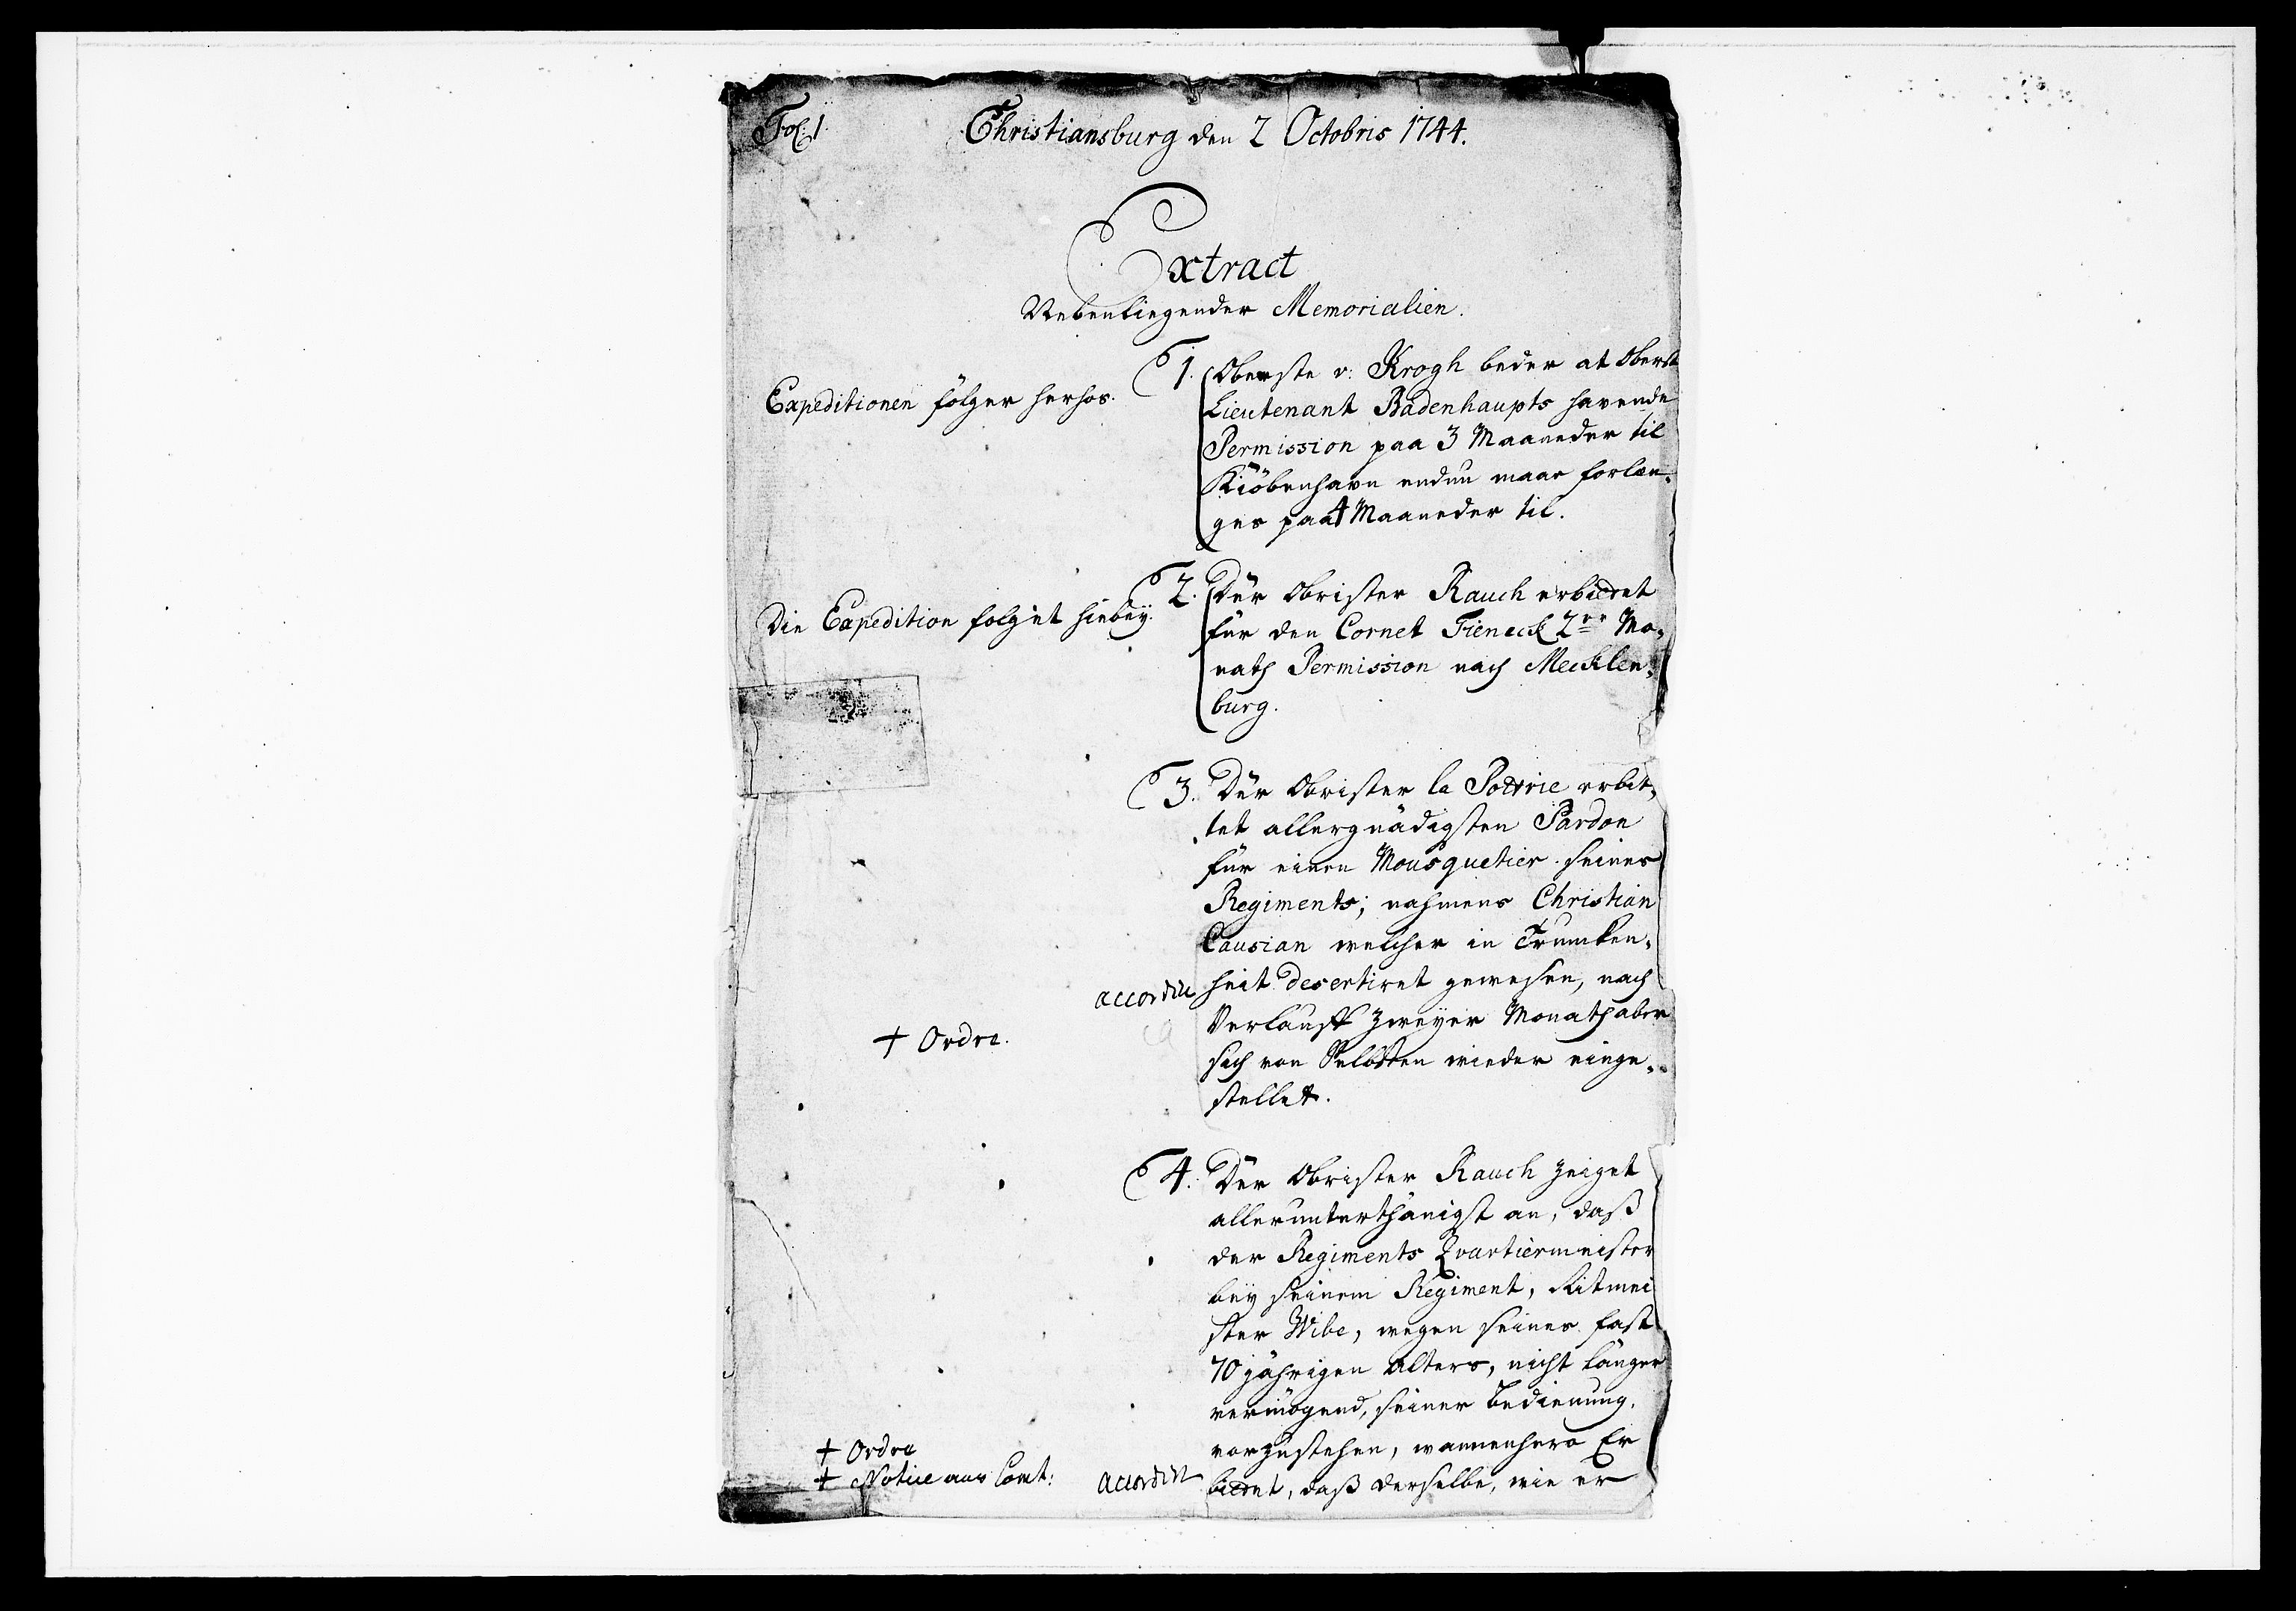 Fol. 1.
Christiansburg den 2 Octobris 1744.
Extract
Nebenliegender Memorialien.
Expeditionen fölger herhos.
1. Oberste v: Krogh beder at Oberst
Lieutenant Badenhaupts havende
Permission paa 3 Maaneder til
Kiöbenhavn endnu maae forlæn-
ges paa 4 Maaneder til.
Die Expedition folget hiebey.
2. Der Obrister Rauch erbietet
für den Cornet Fieneck 2er Mo-
nath Permission nach Mecklen-
burg.
3. Der Obrister la Potrie erbit-
tet allergnädigsten Pardon
für einen Mousquetier seines
Regiments; nahmens Christian
Causian welcher in Trunken-
heit desertiret gewesen, nach
Verlauff zweyer Monath aber
sich von Selbsten wieder einge-
stellet.
accordirt
+ Ordre.
4. Der Obrister Rauch zeiget
allerunterthänigst an, daß
der Regiments Qvartiermeister
bey seinem Regiment, Ritmei
ster Wibe, wegen seines fast
70 jährigen Alters, nicht länger
vermögend, seiner Bedienung
vorzustehen, wannenhero Er
bietet, daß derselbe, wie er
+ Ordre
+ Notice ans Comt:
accordirt